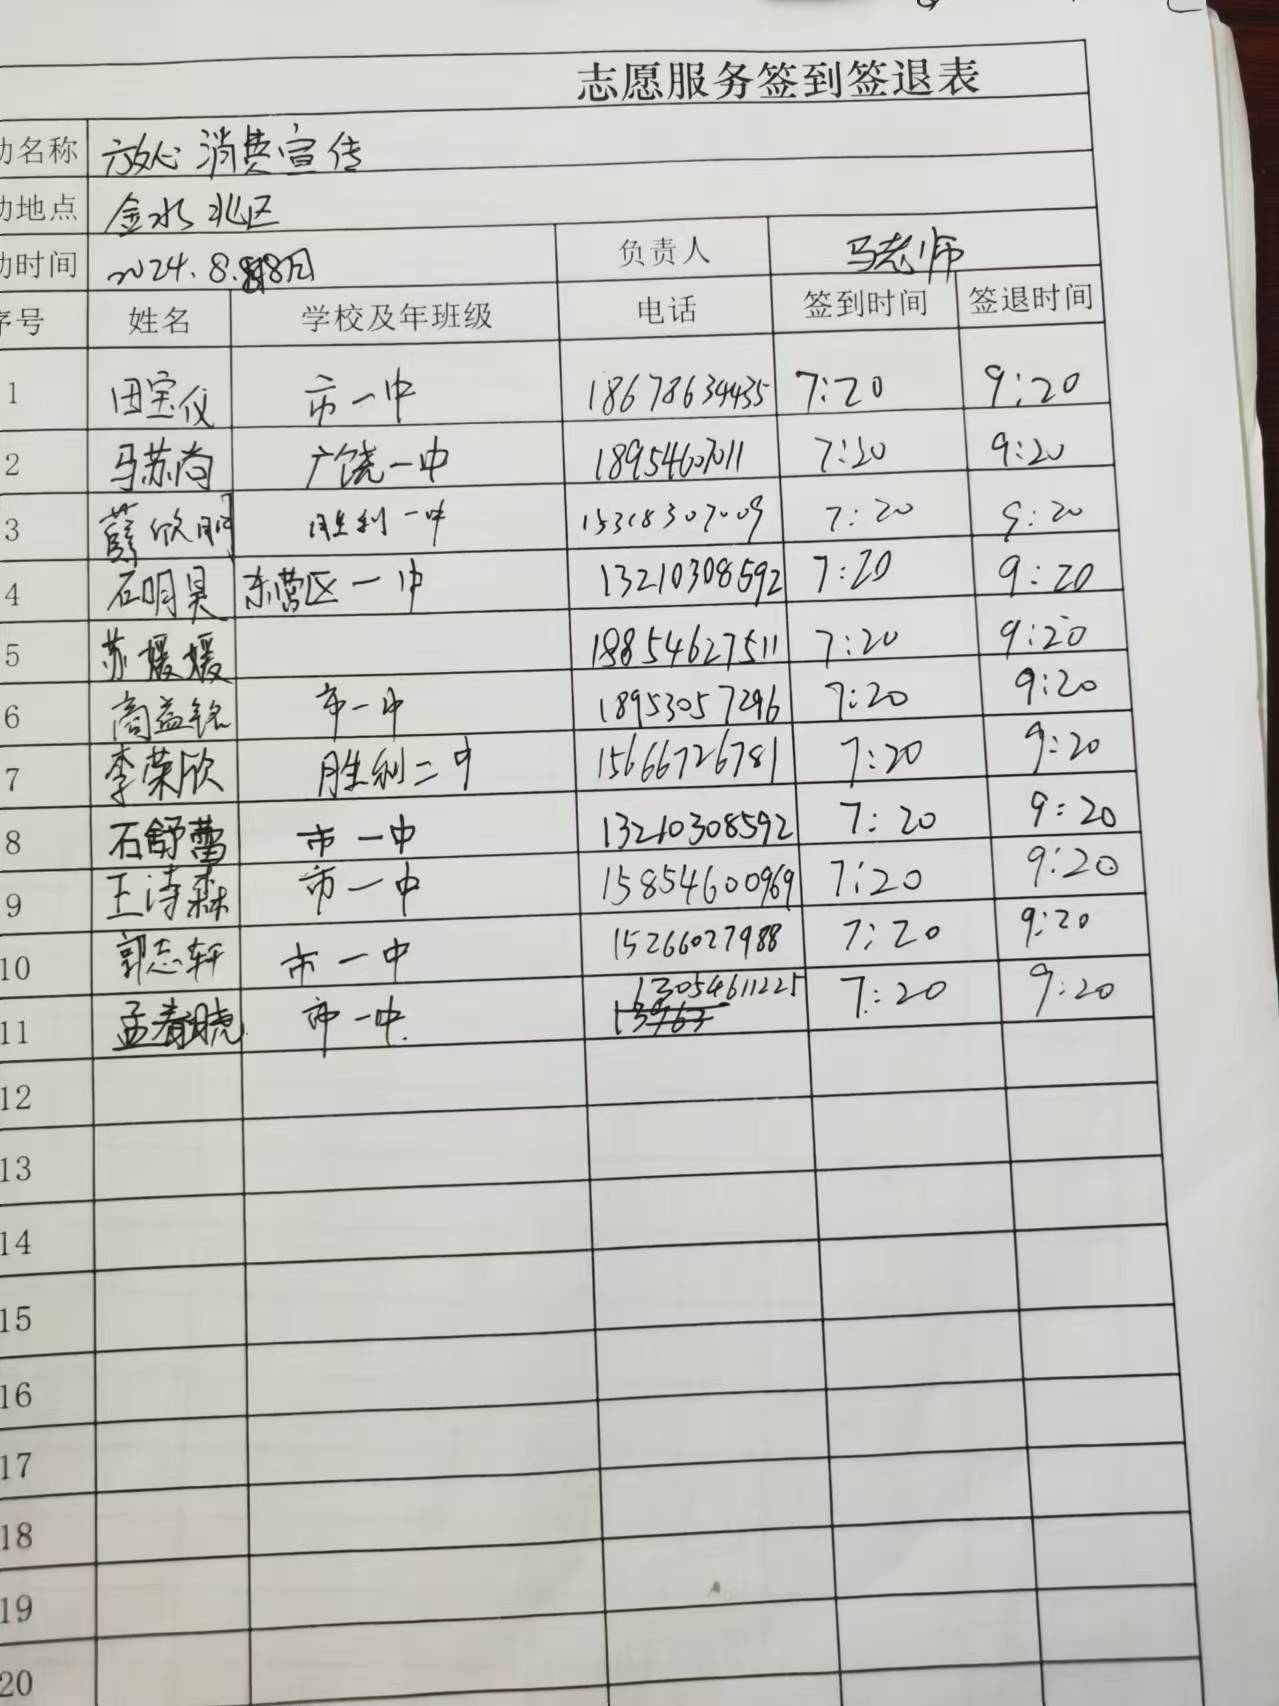 志愿服务签到签退表
动名称 放心消费宣传
动地点 金水北区
动时间 2024.8. 8日 负责人 马老师
序号 姓名 学校及年班级 电话 签到时间 签退时间
1 田宝仪 市一中 18678634435 7:20 9:20
2 马苏尚 广饶一中 18954607011 7:20 9:20
3 薛欣玥 胜利一中 15318307009 7:20 9:20
4 石明昊 东营区一中 13210308592 7:20 9:20
5 苏媛媛 18854627511 7:20 9:20
6 商益铭 市一中 18953057296 7:20 9:20
7 李荣欣 胜利二中 15666726781 7:20 9:20
8 石舒蕾 市一中 13210308592 7:20 9:20
9 王诗森 市一中 15854600969 7:20 9:20
10 郭志轩 市一中 15266027988 7:20 9:20
11 孟春晓 市一中. 13054611225 7:20 9:20
12
13
14
15
16
17
18
19
20